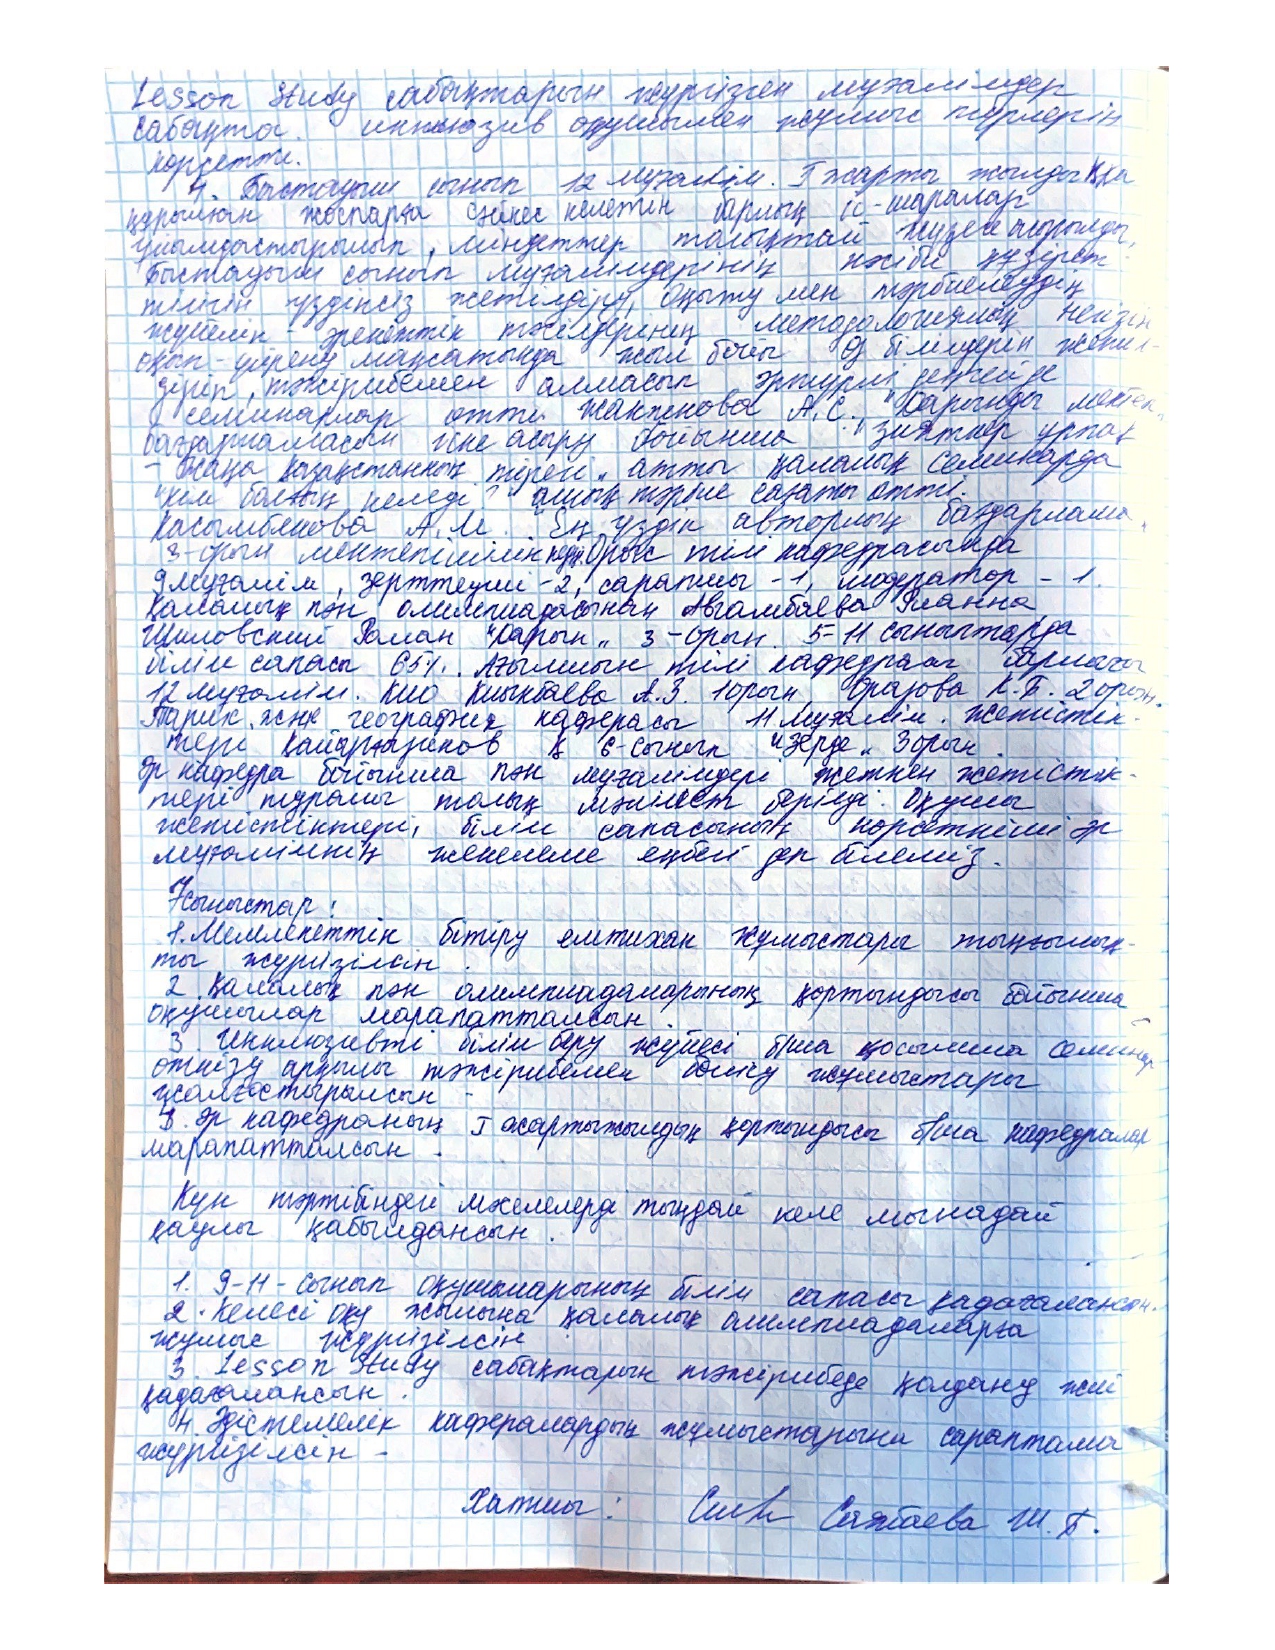 Lesson Study сабақтарын жүргізген мұғалімдер
сабақта. инклюзив оқушымен жұмыс түрлерін
көрсетті.
4. Бастауыш сынып 12 мұғалім. I жарты жылдыққа
құрылған жоспарға сәйкес келетін барлық іс-шаралар
ұйымдастырылып, міндеттер толықтай жүзеге асырылды,
Бастауыш сынып мұғалімдерінің кәсіби құзірет-
тілігін үздіксіз жетілдіру, Оқыту мен тәрбиелеудің
жүйелік - әрекеттік тәсілдерінің методологиялық негізін
оқып-үйрену мақсатында жыл бойы өз білімдерін жетіл-
діріп, тәжірибемен алмасып әртүрлі деңгейде
семинарлар өтті. Жакенова А.С. "Дарынды мектеп"
бағдарламасын іске асыру бойынша "Зияткер ұрпақ
- Жаңа Қазақстанның тірегі" атты қалалық семинарда
"Кім болғың келеді?" ашық тәрбие сағаты өтті.
Касымбекова А.М. "Ең үздік авторлық бағдарлама"
3-орын мектепішілік Орыс тілі кафедрасында
9 мұғалім, зерттеуші-2, сарапшы-1, модератор - 1.
Қалалық пән олимпиадасынан Авгамбаева Рианна
Шиловский Роман "Дарын" 3-орын. 5-11 сыныптарда
білім сапасы 65%. Ағылшын тілі кафедрасы барлығы
12 мұғалім. КИО Киыкбаева А.З. 1 орын, Оразова К.Б. 2 орын.
Тарих және география каферасы 11 мұғалім. Жетістік-
тері Қайырғазинов Қ 6-сынып "Зерде" 3 орын.
Әр кафедра бойынша пән мұғалімдері жеткен жетістік-
тері туралы толық мәлімет берілді. Оқушы
жетістіктері, білім сапасының көрсеткіші әр
мұғалімнің жекелеме еңбегі деп білеміз.
Ұсыныстар:
1. Мемлекеттік бітіру емтихан жұмыстары тыңғылық-
ты жүргізілсін.
2. Қалалық пән олимпиадаларының қортындысы бойынша
оқушылар марапатталсын.
3. Инклюзивті білім беру жүйесі б/ша қосымша семинар
өткізу арқылы тәжірибемен бөлісу жұмыстары
жалғастырылсын -
3. Әр кафедраның I жартыжылдық қортындысы б/ша кафедралар
марапатталсын.
Күн тәртібіндегі мәселелерді тыңдай келе мынадай
қаулы қабылдансын.
1. 9-11-сынып оқушыларының білім сапасы қадағалансын.
2. Келесі оқу жылына қалалық олимпиадаларға
жұмыс жүргізілсін.
3. Lesson Study сабақтарын тәжірибеде қолдану жиі
қадағалансын.
4. Әдістемелік кафералардың жұмыстарына сараптама
жүргізілсін -
Хатшы: Сажбаева Ш.Б.